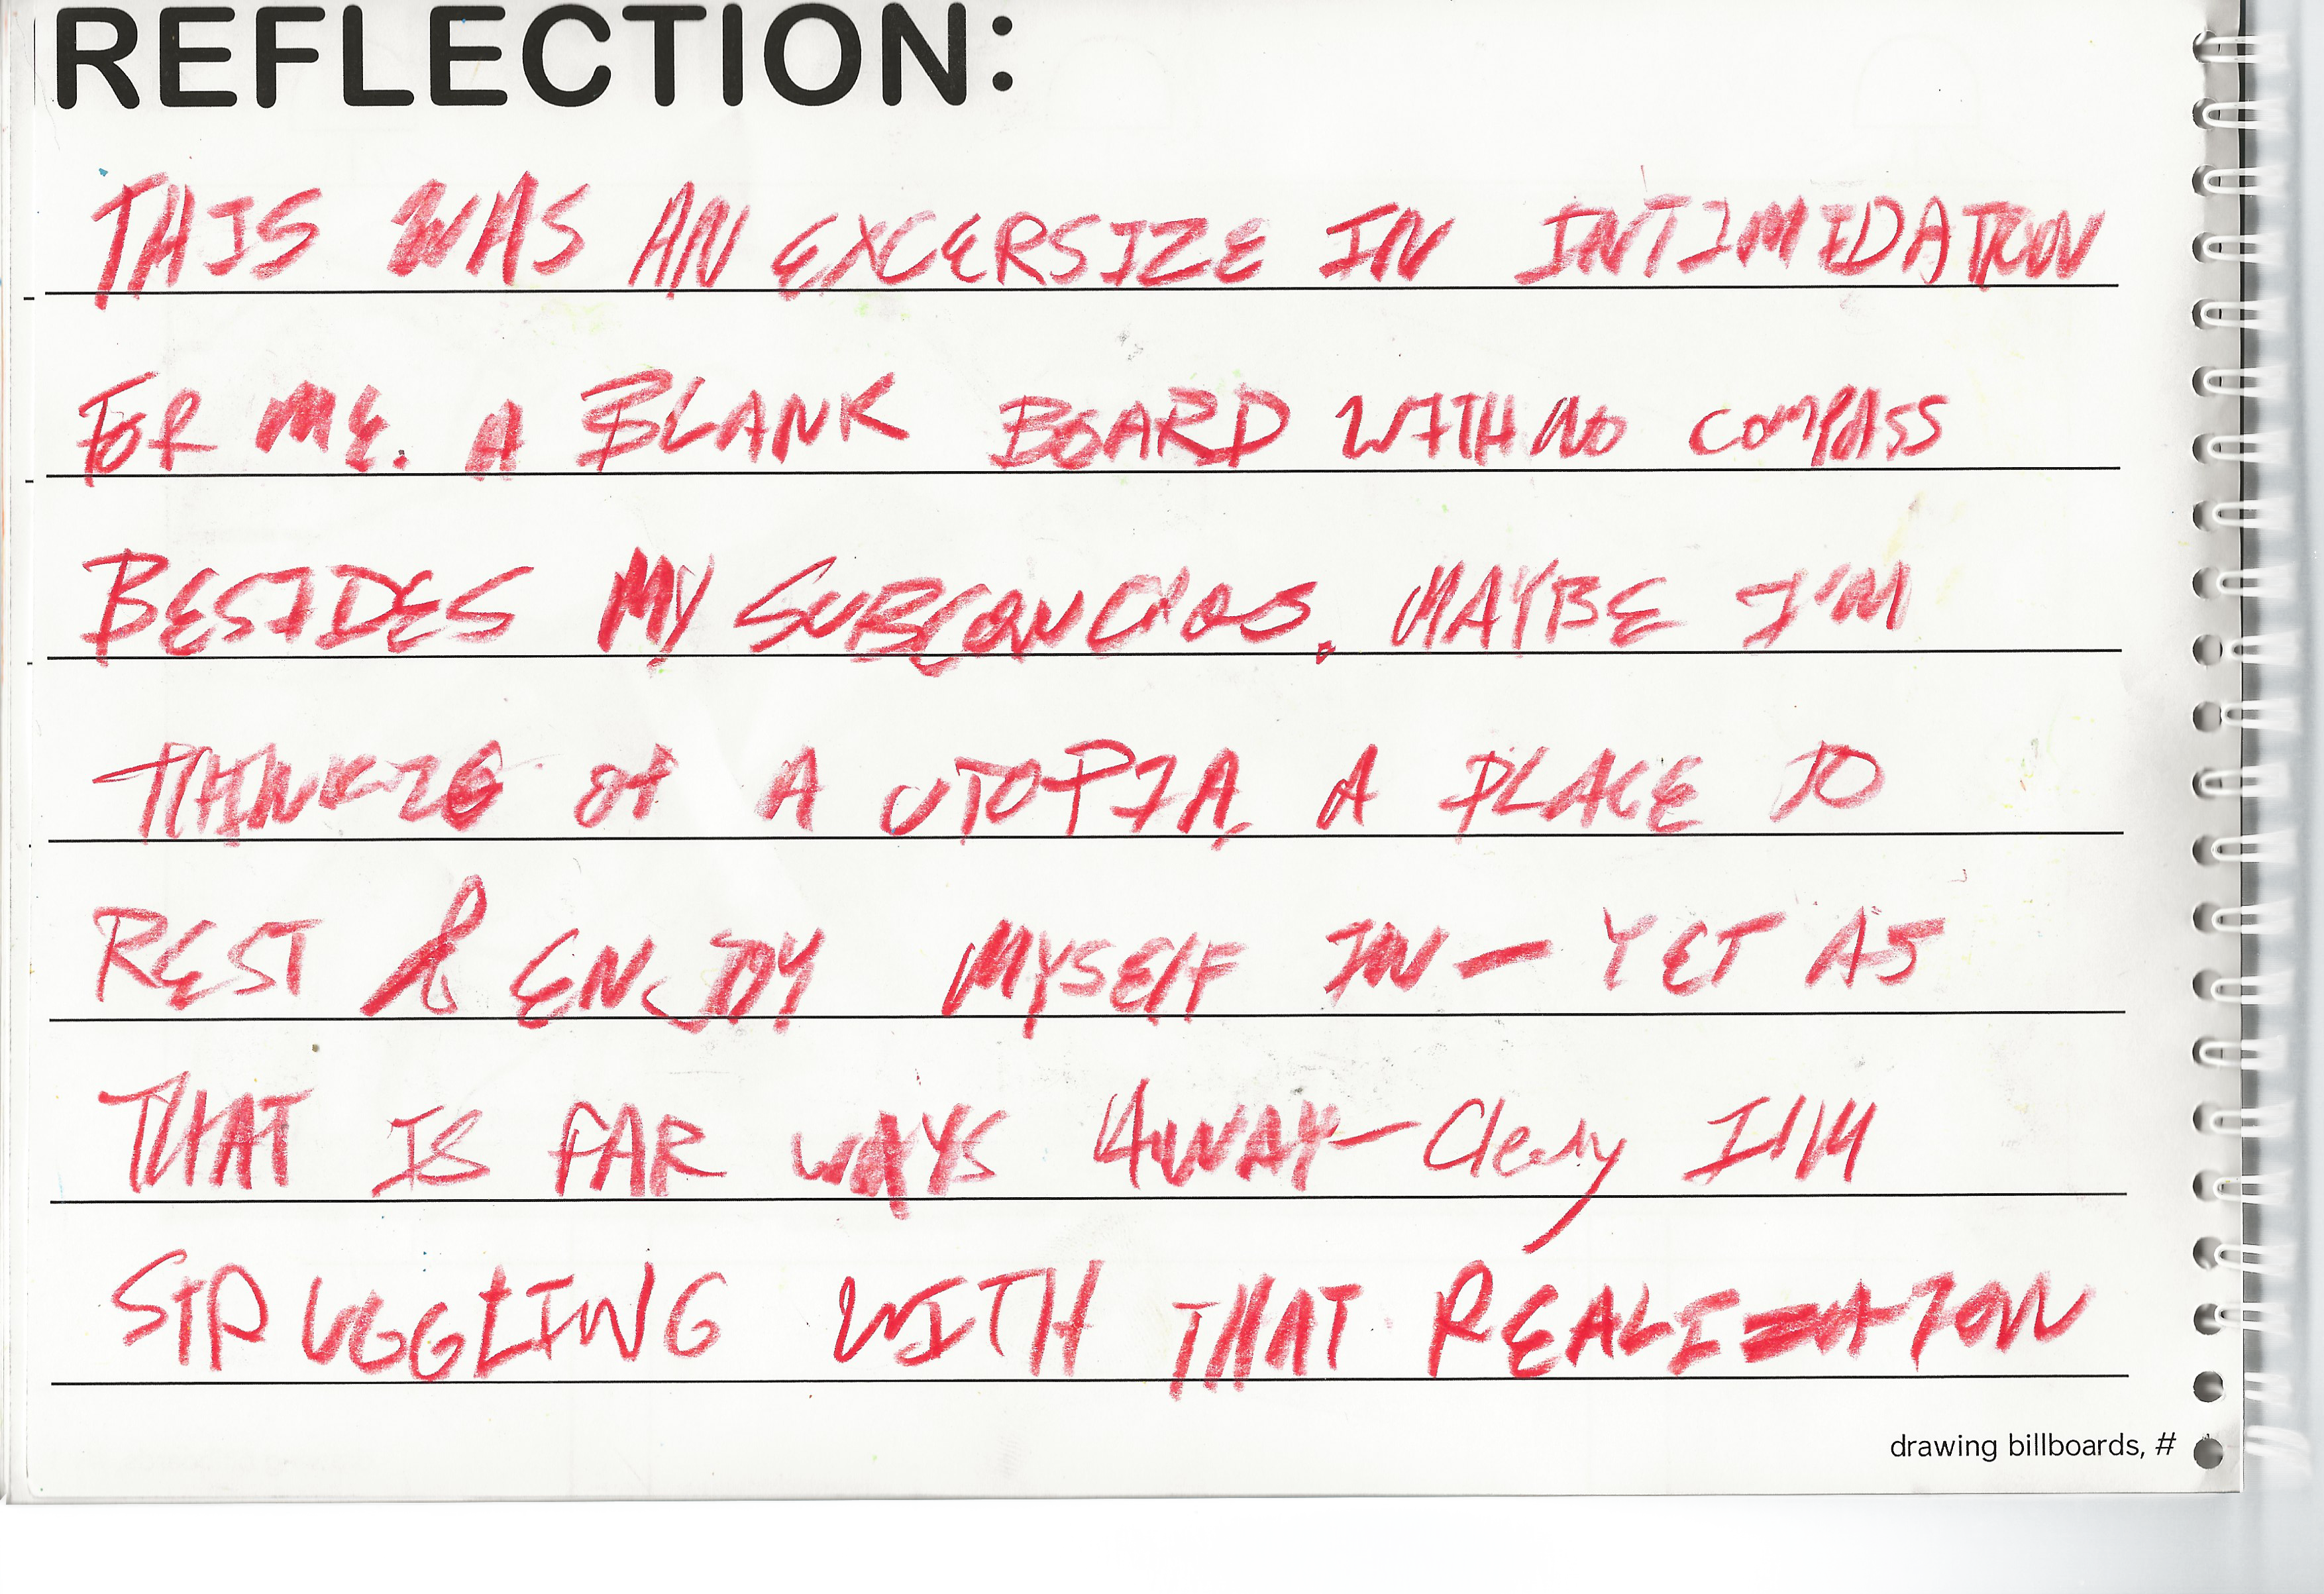 REFLECTION:
THIS WAS AN EXCERSIZE IN INTIMIDATION
FOR ME. A BLANK BOARD WITH NO COMPASS
BESIDES MY SUBCONCIOS. MAYBE I'M
OF A UTOPIA, A PLACE TO
REST & ENJOY MYSELF IN — YET AS
THAT IS FAR WAYS AWAY — I'M
STRUGGLING WITH THAT REALIZATION
drawing billboards, #